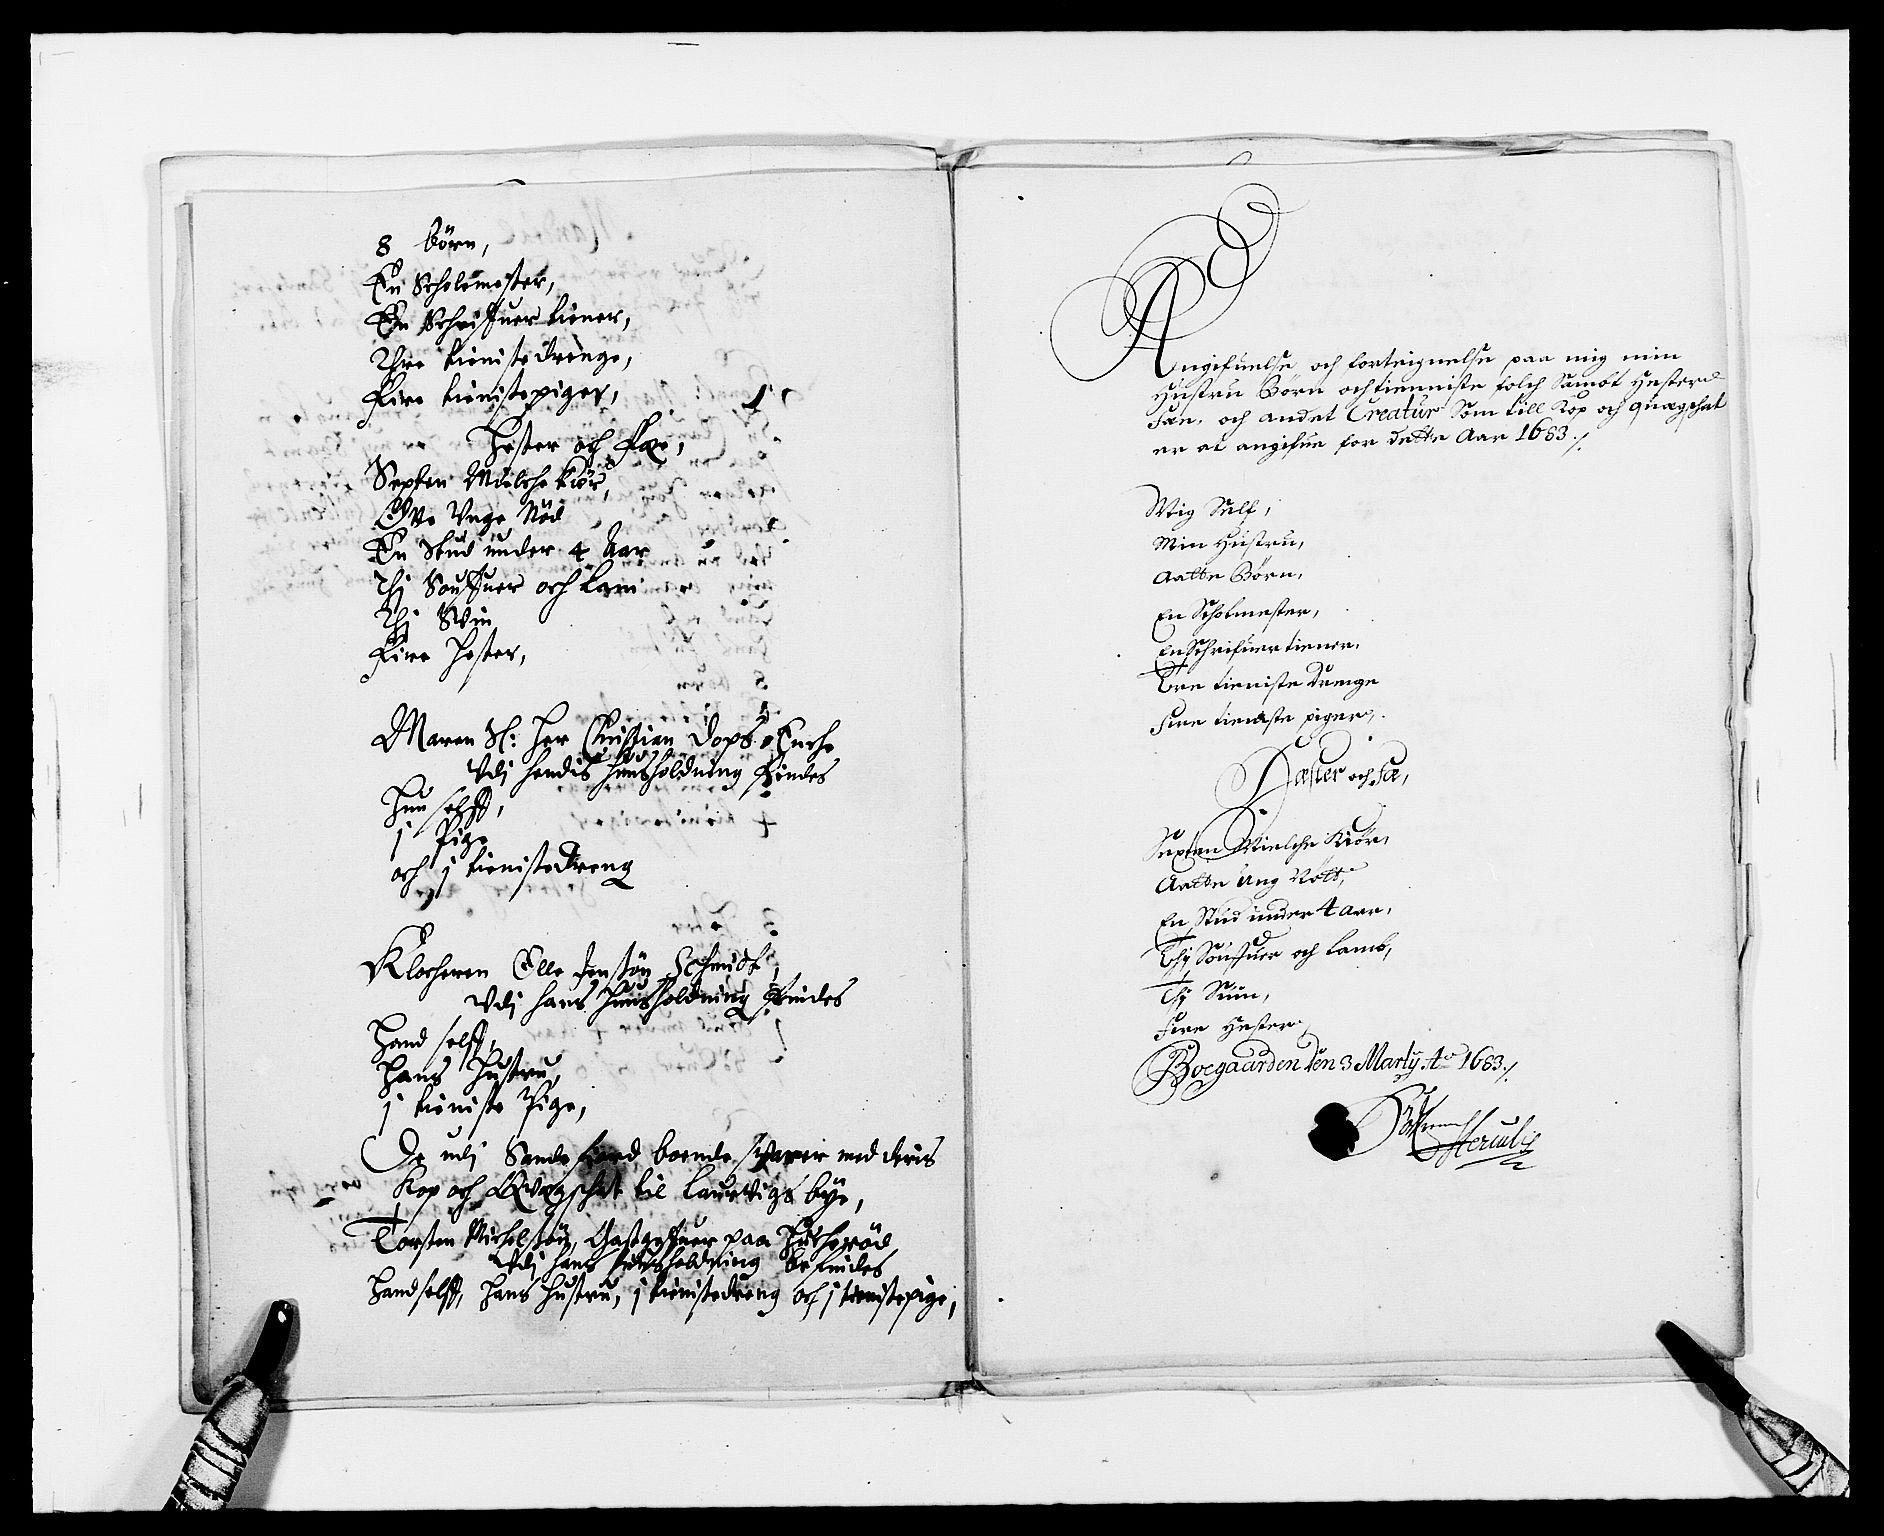 8 börn,
En Scholemester,
En Schriffuer tiener,
Thre tienistedrenge,
Fire tienistepiger,
Hester och Fæ,
Sexten Mielche kiör,
Otte Unge Nöd
En Stud under 4 Aar
Thj Souffuer och Lam
Thj Svin
Fire Hester,
Maren Sl: Her Christian Dops Encke
Udj hendis huusholdning findes
Hun selff,
j Pige
och j tienistedreng
Klocheren Olle Jensön Schmidt,
Udj hans Huusholdning findes
Hand selff,
Hans Hustru,
j tieniste Pige,
De udj Sandefiord boende svarer med deris
Kop och Qvægschat til Laurvigs bye,
Torsten Michelsön, Gastgeffuer paa
Udj hans huusholdning befindes
Hand selff, Hans Hustru, j tienistedreng och j tienistepige,
Angifuelse och forteignelse paa mig min
Hustru Börn och tienniste folch Sambt Hester
Fæe, och andet Creatur Som till Kop och quægschat
er at angifue for dette Aar 1683 ./.
Mig Self,
Min Hustru,
Aatte Börn,
En Scholmester,
En Schrifuer tiener,
Tre tieniste Drenge
Fire tieniste piger,
Hæster och Fæ,
Sexten Mielche Kiör,
Aatte Ung Nött,
En Stud under 4 aar,
Thj Souffuer och Lamb,
Thj Suin,
Fire Hester,
Boegaarden den 3 Martij Ao 1683 ./.
Herculj